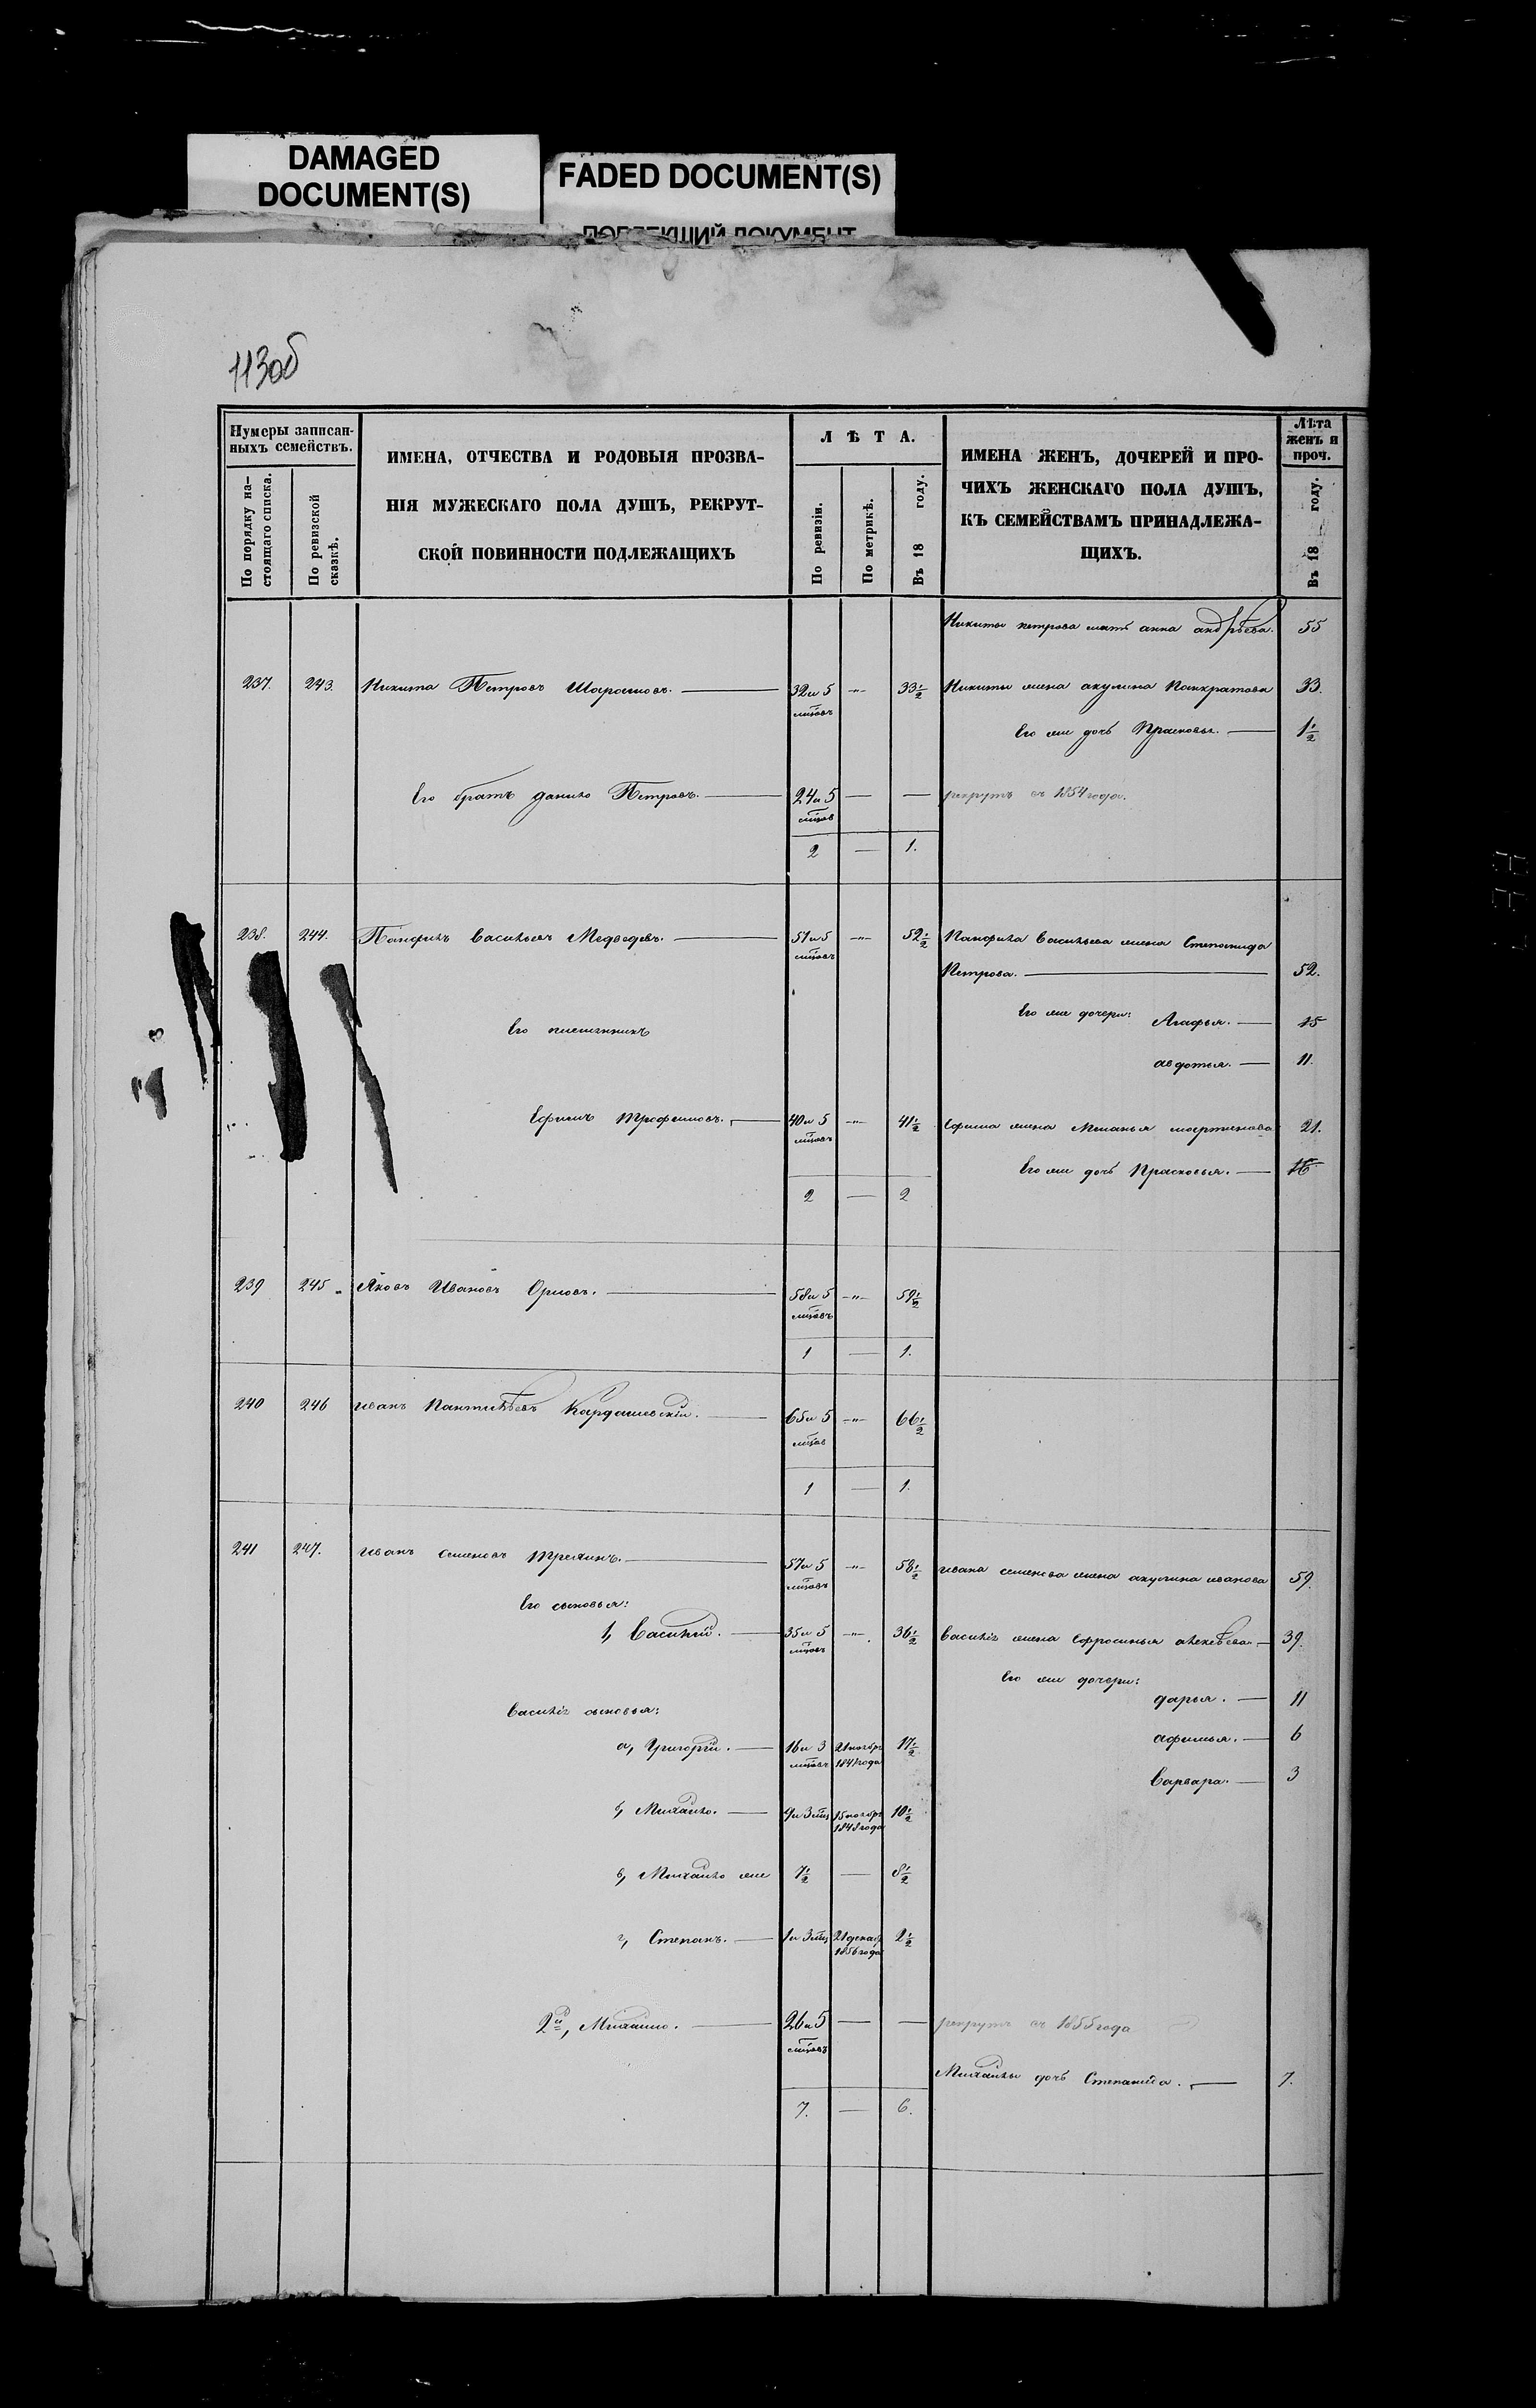 DAMAGED
DOCUMENT(S)
FADED DOCUMENT(S)
ДОКУМЕНТ
113об
Нумеры записан-
ныхъ семействъ.
По порядку на-
стоящаго списка.
По ревизской
сказкѣ.
ИМЕНА, ОТЧЕСТВА И РОДОВЫЯ ПРОЗВА-
НІЯ МУЖЕСКАГО ПОЛА ДУШЪ, РЕКРУТ-
СКОЙ ПОВИННОСТИ ПОДЛЕЖАЩИХЪ
ЛѢТА.
По ревизіи.
По метрикѣ.
Въ 18 году.
ИМЕНА ЖЕНЪ, ДОЧЕРЕЙ И ПРО-
ЧИХЪ ЖЕНСКАГО ПОЛА ДУШЪ,
КЪ СЕМЕЙСТВАМЪ ПРИНАДЛЕЖА-
ЩИХЪ.
Лѣта
женъ и
проч.
Въ 18 году.
Никиты петрова мать анна андрѣева. 55
237. 243. Никита Петровъ 32 и 5 мѣсяцовъ -"- 33½ Никиты жена акулина Панкратова 33.
Его же дочь Прасковья. 1½
Его братъ данило Петровъ. 24 и 5 мѣсяцов — — рекрутъ съ 1854 года.
2 — 1.
238. 244. Панфилъ Васильевъ Медведевъ. 51 и 5 мѣсяцовъ -"- 52½ Панфила Васильева жена Степанида
Петрова. 52.
Его же дочери: Агафья. 15
Его племянникъ
авдотья. 11.
Ефимъ Трофимовъ. 40 и 5 мѣсяцовъ -"- 41½ Ефима жена Меланья мартинова 21.
Его же дочь Прасковья. 16
2 — 2
239 245 Яковъ Ивановъ Орловъ. 58 и 5 мѣсяцовъ -"- 59½
1 — 1.
240 246 иванъ Пантилѣевъ Кардашевскій. 65 и 5 мѣсяцов -"- 66½
1 — 1.
241 247. иванъ семеновъ 57 и 5 мѣсяцовъ -"- 58½ ивана семенова жена акулина иванова 59.
Его сыновья:
1, Василій. 35 и 5 мѣсяцовъ -"- 36½ Василія жена Ефросинья алексѣева 39.
Его же дочери:
дарья. 11
Василія сыновья:
афимья. 6
а, Григорій. 16 и 3 мѣсяцовъ 21 ноябр 1841 года 17½
Варвара. 3
б, Михайло. 9 и 3 мѣсяц 15 ноябр 1848 года 10½
в, Михайло же 7½ — 8½
г, Степанъ. 1 и 3 мѣсяц 21 декаб 1856 года 2½
2й, Михайло. 26 и 5 мѣсяцовъ — — рекрутъ съ 1855 года
Михайлы дочь Степанида. 7.
7. — 6.